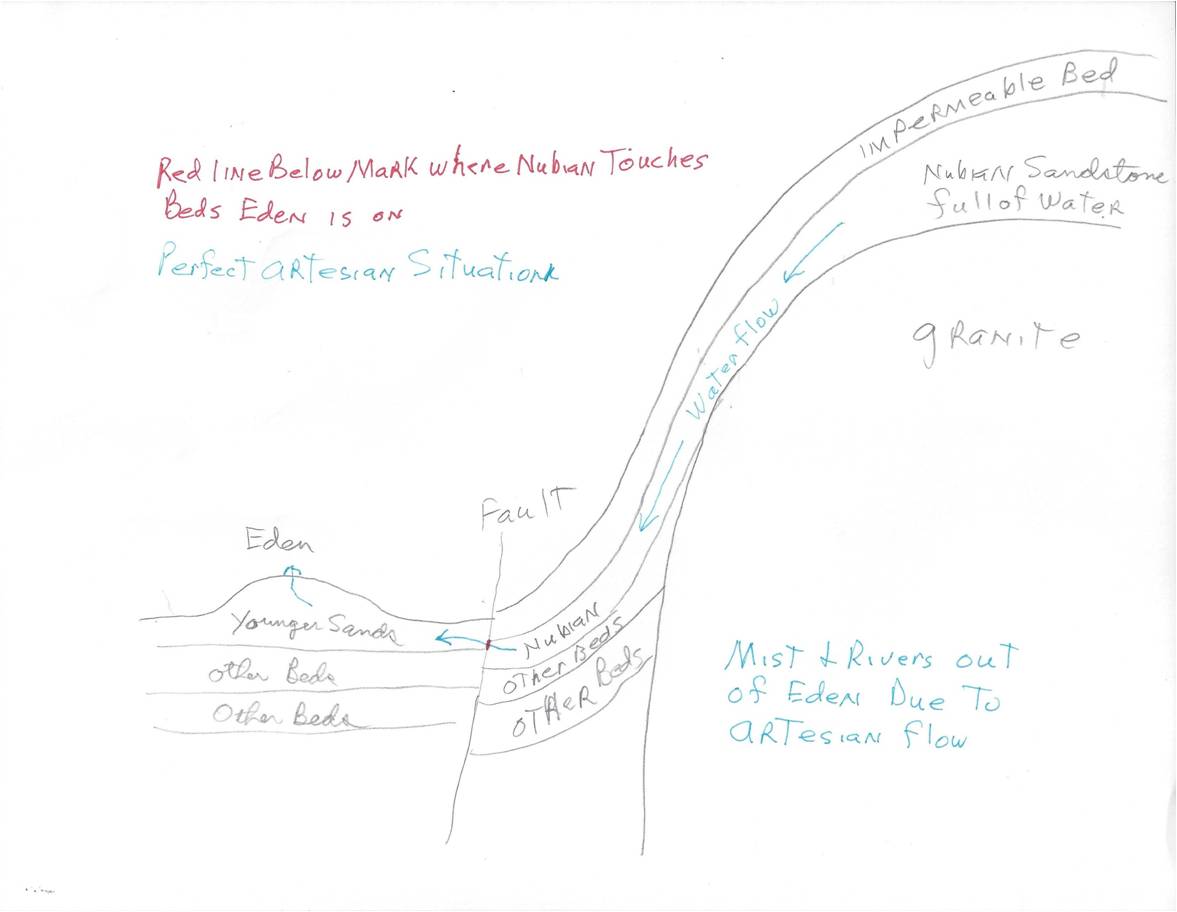 Impermeable Bed
Red line Below Mark where Nubian Touches
Beds Eden is on
Perfect artesian Situation
Nubian Sandstone
full of water
granite
Water flow
Fault
Eden
Younger Sands
Other Beds
Other Beds
Nubian
Other Beds
Other Beds
Mist & Rivers out
of Eden Due To
artesian flow